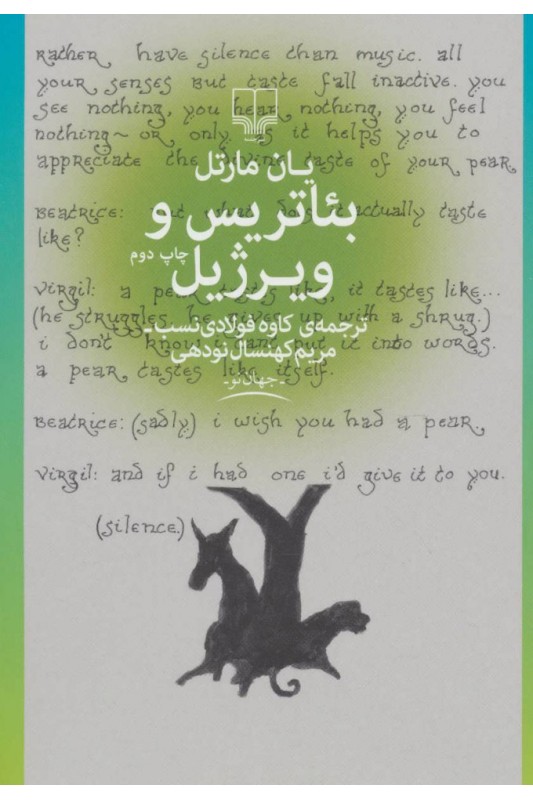 Rather have silence than music. all
your senses but taste fall inactive. you
see nothing, you hear nothing, you feel
nothing~ or only as it helps you to
appreciate the divine taste of your pear.
یان مارتل
بئاتریس و
ویرژیل
چاپ دوم
Beatrice: but what does it actually taste
like?
Virgil: a pear tastes like, it tastes like...
(he struggles. he gives up with a shrug.)
i don't know. i can't put it into words.
a pear tastes like itself.
ترجمه‌ی کاوه فولادی‌نسب-
مریم کهنسال نودهی
-جهان‌نو-
Beatrice: (sadly) i wish you had a pear.
Virgil: and if i had one i'd give it to you.
(silence.)